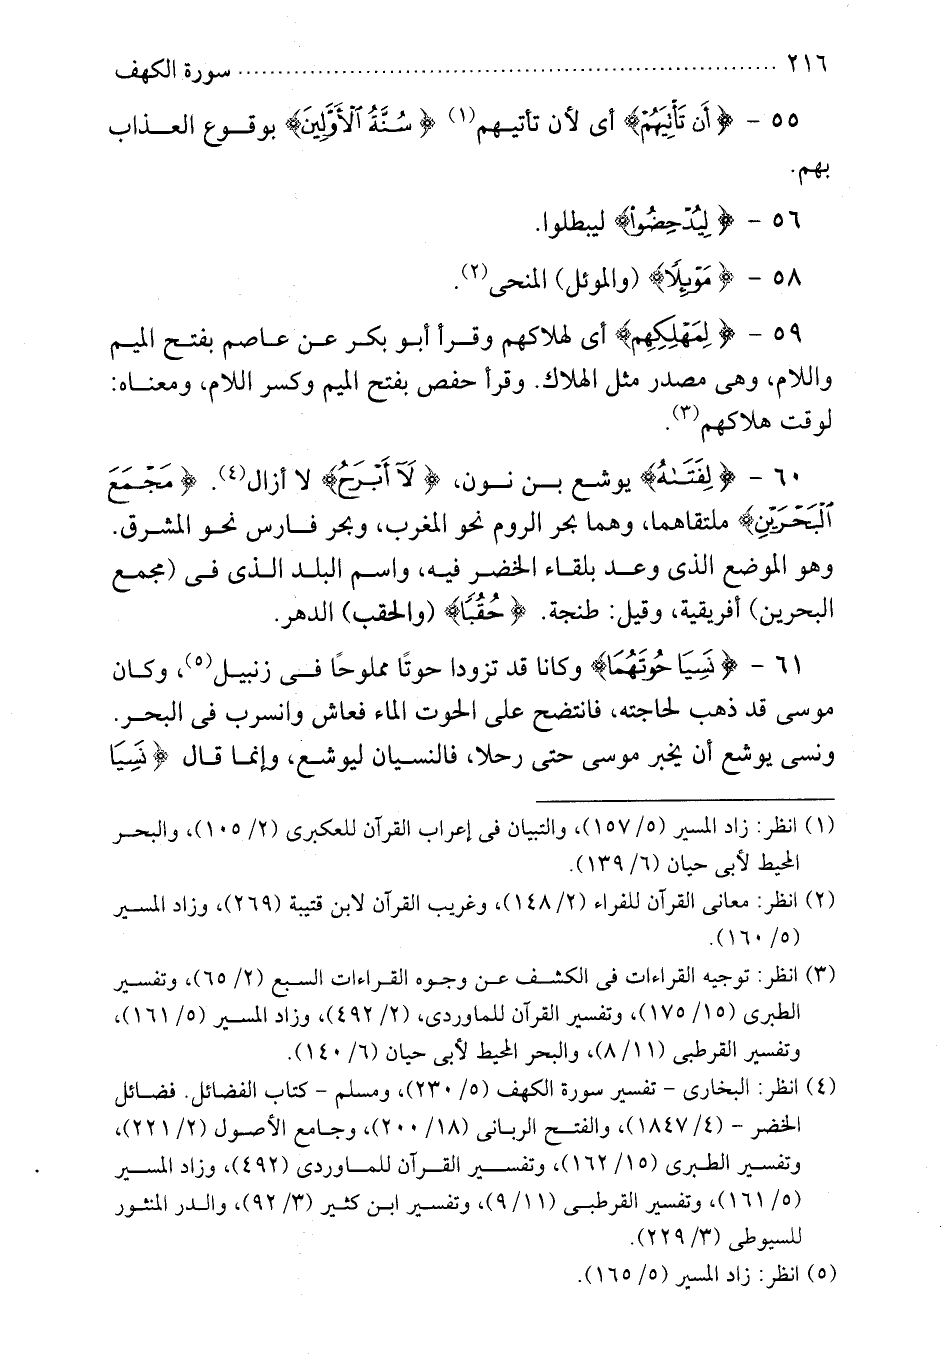 ٢١٦ ........................................ سورة الكهف
٥٥ - ﴿أَن تَأْتِيَهُمْ﴾ أى لأن تأتيهم(١) ﴿سُنَّةُ ٱلْأَوَّلِينَ﴾ بوقوع العذاب
بهم.
٥٦ - ﴿لِيُدْحِضُوا۟﴾ ليبطلوا.
٥٨ - ﴿مَوْئِلًا﴾ (والموئل) المنحى(٢).
٥٩ - ﴿لِمَهْلِكِهِم﴾ أى لهلاكهم وقرأ أبو بكر عن عاصم بفتح الميم
واللام، وهى مصدر مثل الهلاك. وقرأ حفص بفتح الميم وكسر اللام، ومعناه:
لوقت هلاكهم(٣).
٦٠ - ﴿لِفَتَىٰهُ﴾ يوشع بن نون، ﴿لَآ أَبْرَحُ﴾ لا أزال(٤). ﴿مَجْمَعَ
ٱلْبَحْرَيْنِ﴾ ملتقاهما، وهما بحر الروم نحو المغرب، وبحر فارس نحو المشرق.
وهو الموضع الذى وعد بلقاء الخضر فيه، واسم البلد الذى فى (مجمع
البحرين) أفريقية، وقيل: طنجة. ﴿حُقُبًا﴾ (والحقب) الدهر.
٦١ - ﴿نَسِيَا حُوتَهُمَا﴾ وكانا قد تزودا حوتًا مملوحًا فى زنبيل(٥)، وكان
موسى قد ذهب لحاجته، فانتضح على الحوت الماء فعاش وانسرب فى البحر.
ونسى يوشع أن يخبر موسى حتى رحلا، فالنسيان ليوشع، وإنما قال ﴿نَسِيَا
(١) انظر: زاد المسير (٥/ ١٥٧)، والتبيان فى إعراب القرآن للعكبرى (٢/ ١٠٥)، والبحر
المحيط لأبى حيان (٦/ ١٣٩).
(٢) انظر: معانى القرآن للفراء (٢/ ١٤٨)، وغريب القرآن لابن قتيبة (٢٦٩)، وزاد المسير
(٥/ ١٦٠).
(٣) انظر: توجيه القراءات فى الكشف عن وجوه القراءات السبع (٢/ ٦٥)، وتفسير
الطبرى (١٥/ ١٧٥)، وتفسير القرآن للماوردى، (٢/ ٤٩٢)، وزاد المسير (٥/ ١٦١)،
وتفسير القرطبى (١١/ ٨)، والبحر المحيط لأبى حيان (٦/ ١٤٠).
(٤) انظر: البخارى - تفسير سورة الكهف (٥/ ٢٣٠)، ومسلم - كتاب الفضائل. فضائل
الخضر - (٤/ ١٨٤٧)، والفتح الربانى (١٨/ ٢٠٠)، وجامع الأصول (٢/ ٢٢١)،
وتفسير الطبرى (١٥/ ١٦٢)، وتفسير القرآن للماوردى (٤٩٢)، وزاد المسير
(٥/ ١٦١)، وتفسير القرطبى (١١/ ٩)، وتفسير ابن كثير (٣/ ٩٢)، والدر المنثور
للسيوطى (٣/ ٢٢٩).
(٥) انظر: زاد المسير (٥/ ١٦٥).